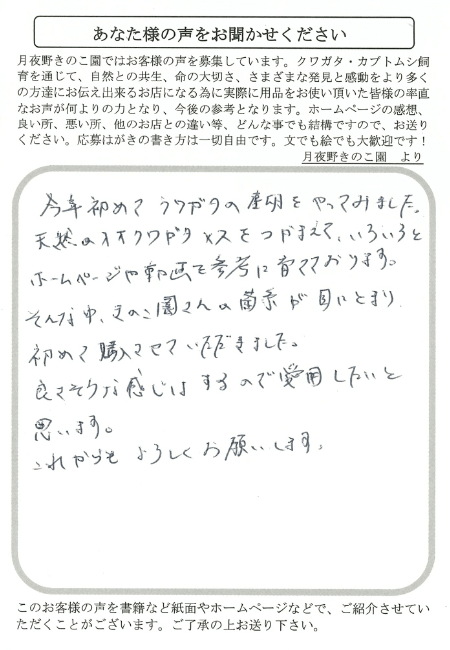 あなた様の声をお聞かせください
月夜野きのこ園ではお客様の声を募集しています。クワガタ・カブトムシ飼
育を通じて、自然との共生、命の大切さ、さまざまな発見と感動をより多く
の方達にお伝え出来るお店になる為に実際に用品をお使い頂いた皆様の率直
なお声が何よりの力となり、今後の参考となります。ホームページの感想、
良い所、悪い所、他のお店との違い等、どんな事でも結構ですので、お送り
ください。応募はがきの書き方は一切自由です。文でも絵でも大歓迎です！
月夜野きのこ園　より
今年初めてクワガタの産卵をやってみました。
天然のオオクワガタメスをつかまえて、いろいろと
ホームページや動画を参考に育てております。
そんな中、きのこ園さんの菌糸が目にとまり
初めて購入させていただきました。
良さそうな感じはするので愛用したいと
思います。
これからもよろしくお願いします。
このお客様の声を書籍など紙面やホームページなどで、ご紹介させてい
ただくことがございます。ご了承の上お送り下さい。